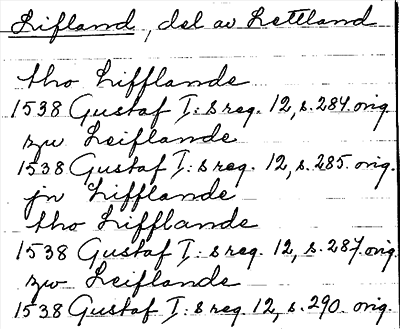 Lifland, del av Lettland
tho Lifflande
1538 Gustaf I:s reg. 12, s. 284 orig.
zu Leiflande
1538 Gustaf I:s reg. 12, s. 285. orig.
jn Lifflande
tho Lifflande
1538 Gustaf I:s reg. 12, s. 287. orig.
zw Leiflande
1538 Gustaf I:s reg. 12, s. 290. orig.